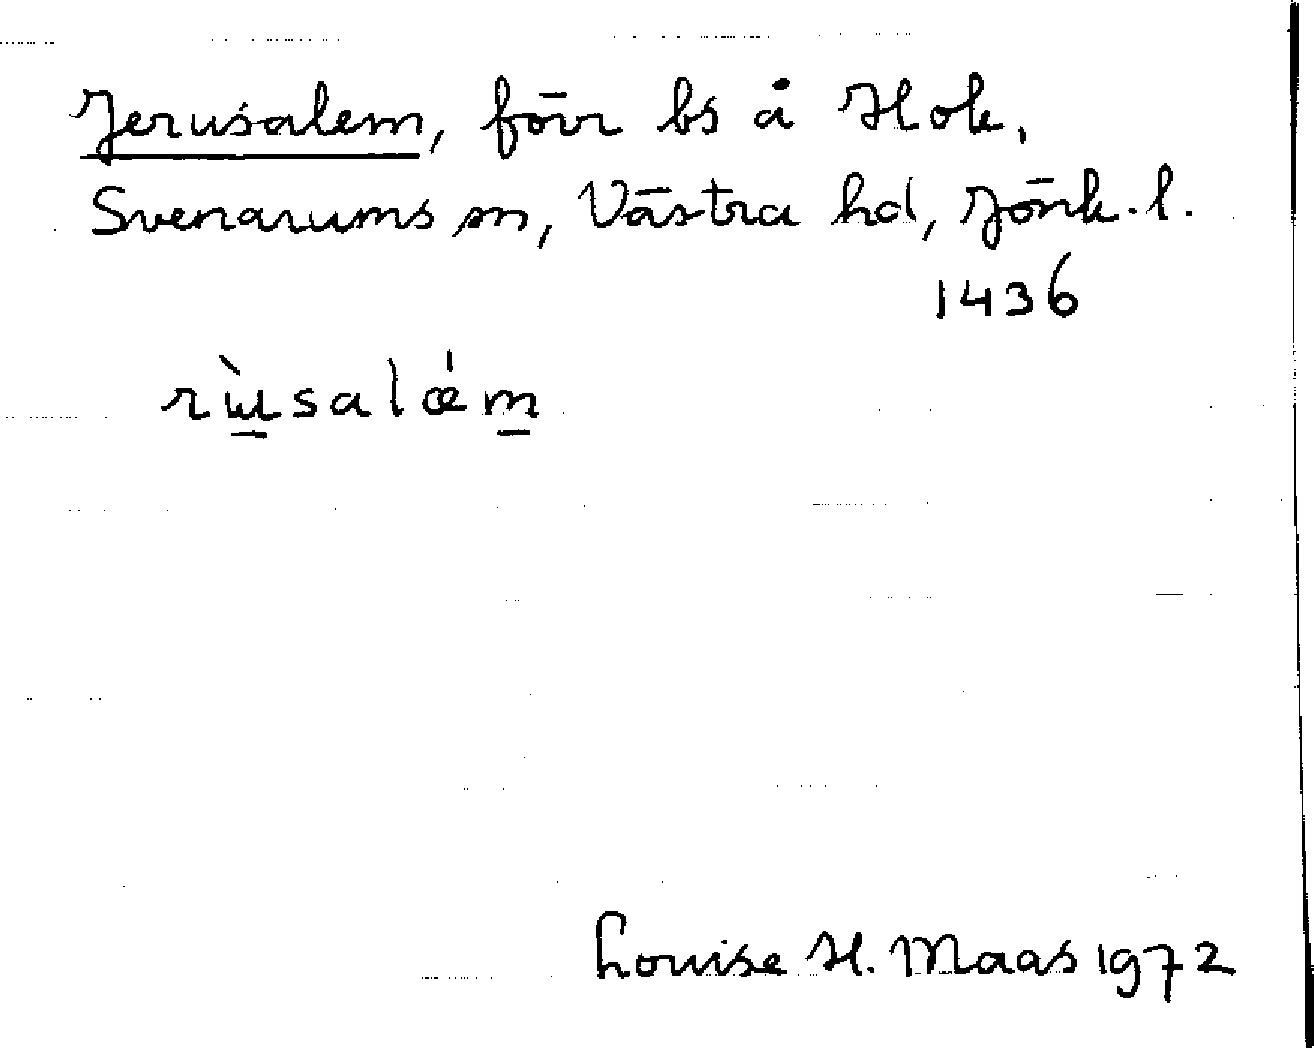 Jerusalem, förr bs å Hok,
Svenarums sn, Västra hd, Jönk.l.
1436
rùsalǽm
Louise H. Maas 1972